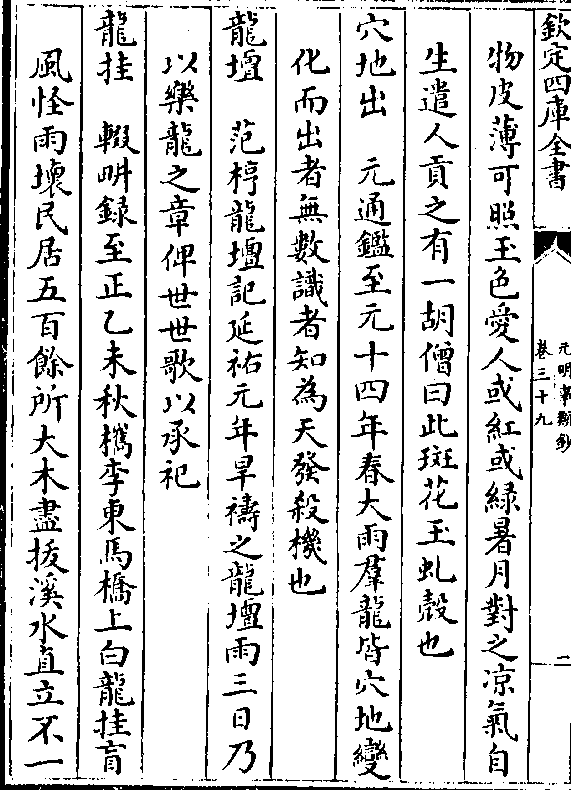 欽定四庫全書
元明事類鈔
卷三十九
二
物皮薄可照玉色愛人或紅或緑暑月對之凉氣自
生遣人貢之有一胡僧曰此斑花玉虬殻也
穴地出　元通鑑至元十四年春大雨羣龍皆穴地變
化而出者無數識者知為天發殺機也
龍壇　范梈龍壇記延祐元年旱禱之龍壇雨三日乃
以樂龍之章俾世世歌以承祀
龍挂　輟畊録至正乙未秋檇李東馬橋上白龍挂肓
風怪雨壞民居五百餘所大木盡拔溪水直立不一